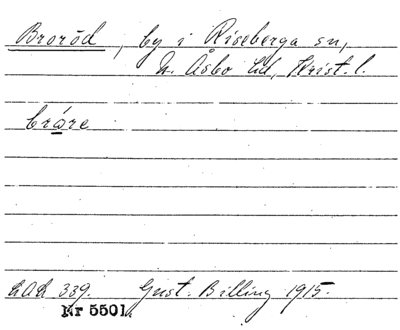 Broröd, by i Riseberga sn,
N. Åsbo hd, Krist. l.
bråre
LAL 339. Gust. Billing 1915.
Nr 5501